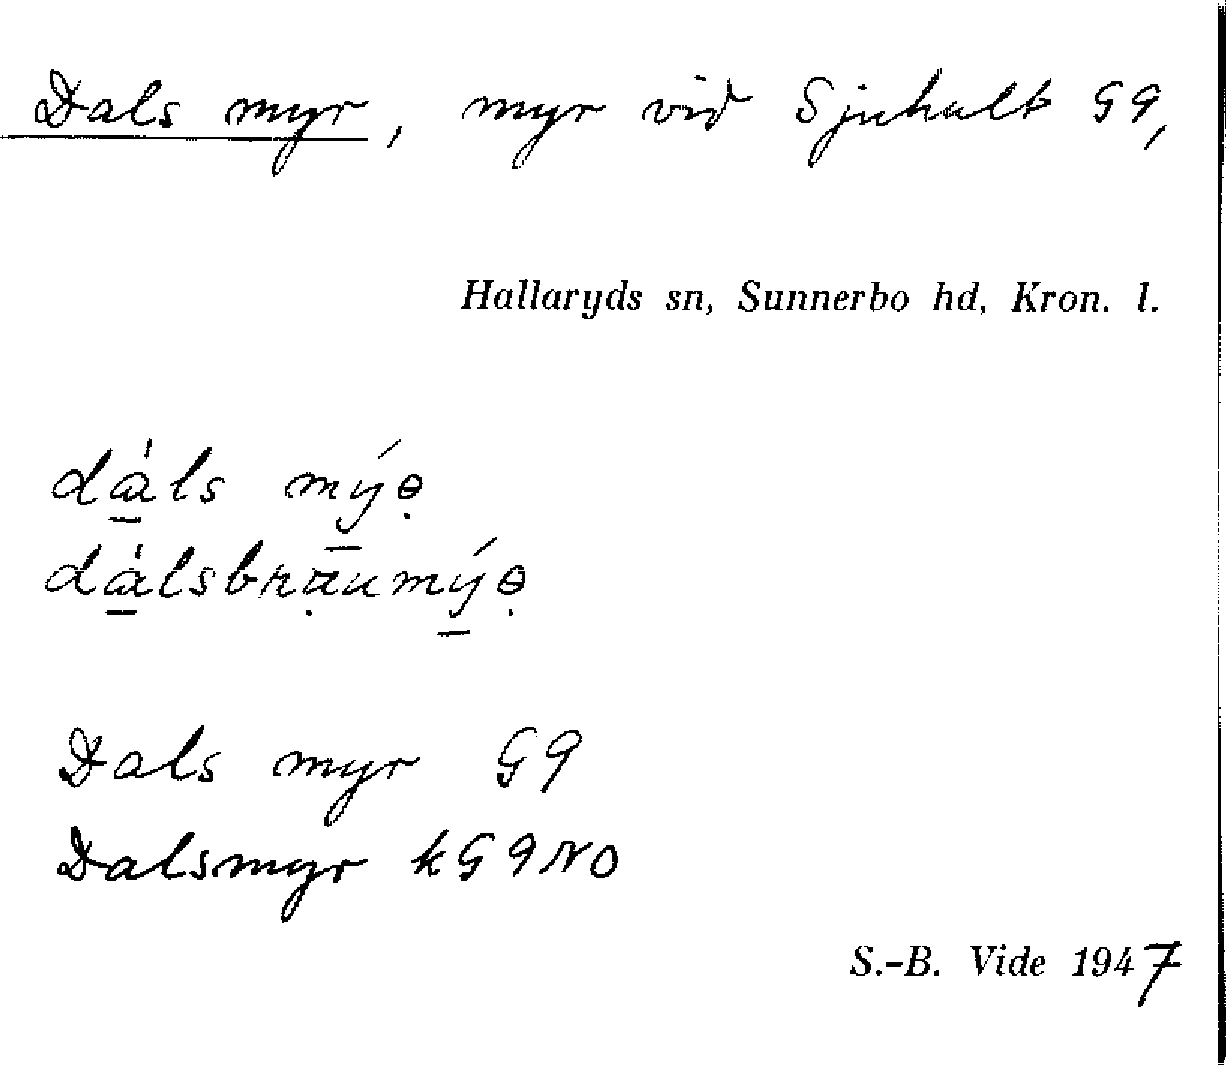 Dals myr, myr vid Sjuhult G9,
Hallaryds sn, Sunnerbo hd, Kron. l.
dα̱̍ls mý̱ɵ̣
dα̱̍lsbrạ̈umý̱ɵ̣
Dals myr G9
Dalsmyr kG9NO
S.-B. Vide 1947